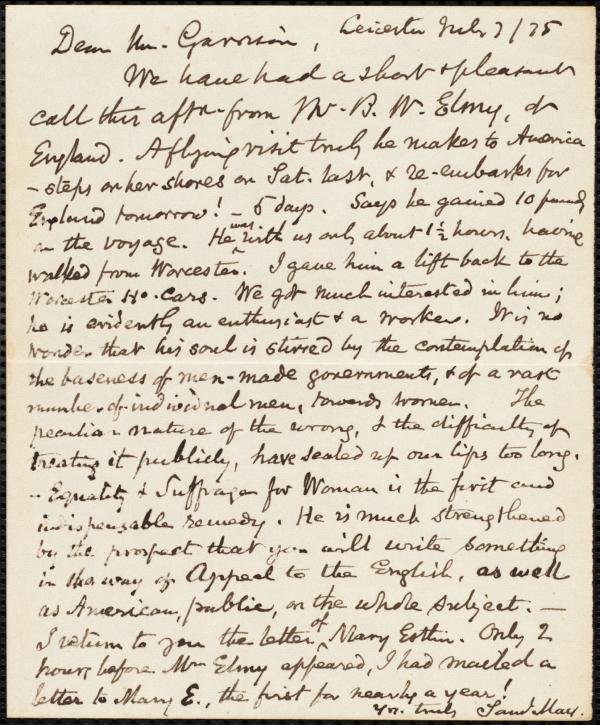 Leicester July 7/75
Dear Mr. Garrison,
We have had a short & pleasant
call this aftn. from Mr. B. W. Elmy, of
England. A flying visit truly he makes to America
- steps on her shores on Sat. last, & re-embarks for
England tomorrow! - 5 days. Says he gained 10 pounds
on the voyage. He was with us only about 1½ hours, having
walked from Worcester. I gave him a lift back to the
Worcester Ho. cars. We got much interested in him;
he is evidently an enthusiast & a worker. It is no
wonder that his soul is stirred by the contemplation of
the baseness of men-made governments, & of a vast
number of individual men, towards women. The
peculiar nature of the wrong, & the difficulty of
treating it publicly, have sealed up our lips too long.
- Equality & Suffrage for Woman is the first and
indispensable remedy. He is much strengthened
by the prospect that you will write something
in the way of Appeal to the English, as well
as American, public, on the whole subject. -
I return to you the letter of Mary Estlin. Only 2
hours before Mr. Elmy appeared, I had mailed a
letter to Mary E., the first for nearly a year!
Yrs. truly Saml May.